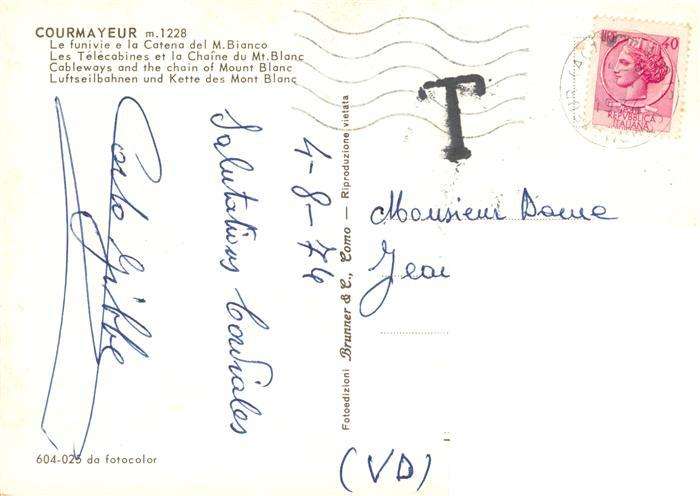 COURMAYEUR m.1228
Le funivie e la Catena del M.Bianco
Les Télécabines et la Chaîne du Mt.Blanc
Cableways and the chain of Mount Blanc
Luftseilbahnen und Kette des Mont Blanc
40
REPVBBLICA
ITALIANA
T
4-8-76
Salutations Cordiales
Carlo
Fotoedizioni Brunner & C., Como — Riproduzione vietata
Monsieur Dome
Jean
(VD)
604-025 da fotocolor